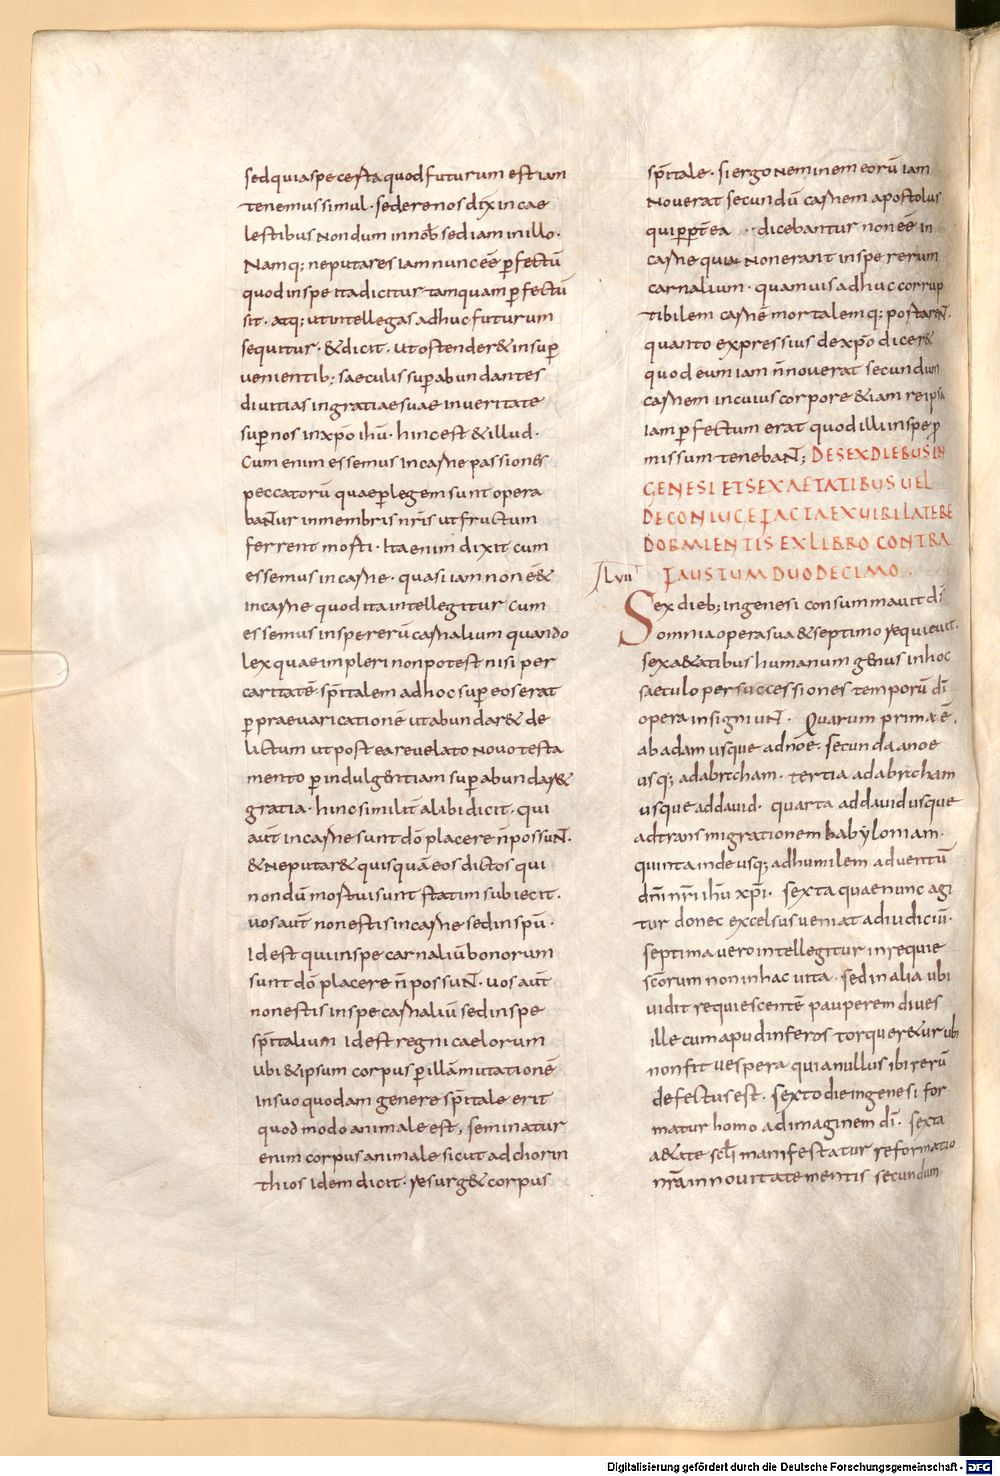 sed quia spe certa quod futurum est iam
tenemus simul · sedere nos dix̄ in cae
lestibus nondum in nob̄ sed iam in illo ·
Namq; ne putares iam nunc eē ꝑfectū
quod in spe ita dicitur tamquam ꝑfectū
sit · atq; ut intellegas adhuc futurum
sequitur · & dicit · ut ostender& in suꝑ
uenientib; saeculis suꝑabundantes
diuitias in gratiae suae in ueritate
suꝑ nos in xp̄o ih̄u · hinc est & illud ·
Cum enim essemus in carne passiones
peccatorū quae ꝑ legem sunt opera
baNtur in membris nr̄is ut fructum
ferrent morti · Ita enim dixit cum
essemus in carne · quasi iam non eē&
in carne quod ita intellegitur cum
essemus in spe rerū carnalium quando
lex quae impleri non potest nisi per
caritatē sp̄italem ad hoc suꝑ eos erat
ꝑ praeuaricationē ut abundar& de
lictum ut postea reuelato nouo testa
mento ꝑ indulgentiam suꝑabundar&
gratia · hinc similit̄ alibi dicit · qui
aut̄ in carne sunt dō placere n̄ possuNt ·
& neputar& quisquā eos dictos qui
nondū mortui sunt statim subiecit ·
uos aut̄ non estis in carne sed in sp̄u ·
Id est qui in spe carnaliū bonorum
sunt dō placere n̄ possuNt · uos aut̄
non estis in spe carnaliū sed in spe
sp̄italium id est regni caelorum
ubi & ipsum corpus ꝑ illā mutationē
in suo quodam genere sp̄itale erit
quod modo animale est, seminatur
enim corpus animale sicut ad chorin
thios idem dicit · resurg& corpus
sp̄itale · si ergo neminem eorū iam
nouerat secundū carnem apostolus
qui ꝓpt̄ea · dicebantur non eē in
carne quia non erant in spe rerum
carnalium · quamuis adhuc corrup
tibilem carnē mortalemq; portareNt ·
quanto expressius de xp̄o dicer&
quod eum iam n̄ nouerat secundum
carnem in cuius corpore &iam re ipsa
iam ꝑfectum erat quod illi in spe ꝓ
missum tenebaNt; DE SEX DIEBUS IN
GENESI ET SEX AETATIBUS UEL
DE CONIUGE FACTA EX UIRI LATERE
DORMIENTIS EX LIBRO CONTRA
FAUSTUM DUODECIMO ·
Lvii
Sex dieb; in genesi consummauit d̄s
omnia opera sua & septimo requieuit ·
sex a&atibus humanum genus in hoc
saeculo per successiones temporū d̄i
opera insigniuNt · Quarum prima ē ·
ab adam usque ad noe · secunda a noe
usq; ad abraham · tertia ad abraham
usque ad dauid · quarta ad dauid usque
ad transmigrationem babyloniam ·
quinta inde usq; ad humilem aduentū
dn̄i nr̄i ih̄u xp̄i · sexta quae nunc agi
tur donec excelsus ueniat ad iudiciū ·
septima uero intellegitur in requie
sc̄orum non in hac uita · sed in alia ubi
uidit requiescentē pauperem diues
ille cum apud inferos torquer&ur ubi
non fit uespera quia nullus ibi rerū
defectus est · sexto die in genesi for
matur homo ad imaginem d̄i · sexta
a&ate sc̄li manifestatur reformatio
nr̄a in nouitate mentis secundum
Digitalisierung gefördert durch die Deutsche Forschungsgemeinschaft - DFG